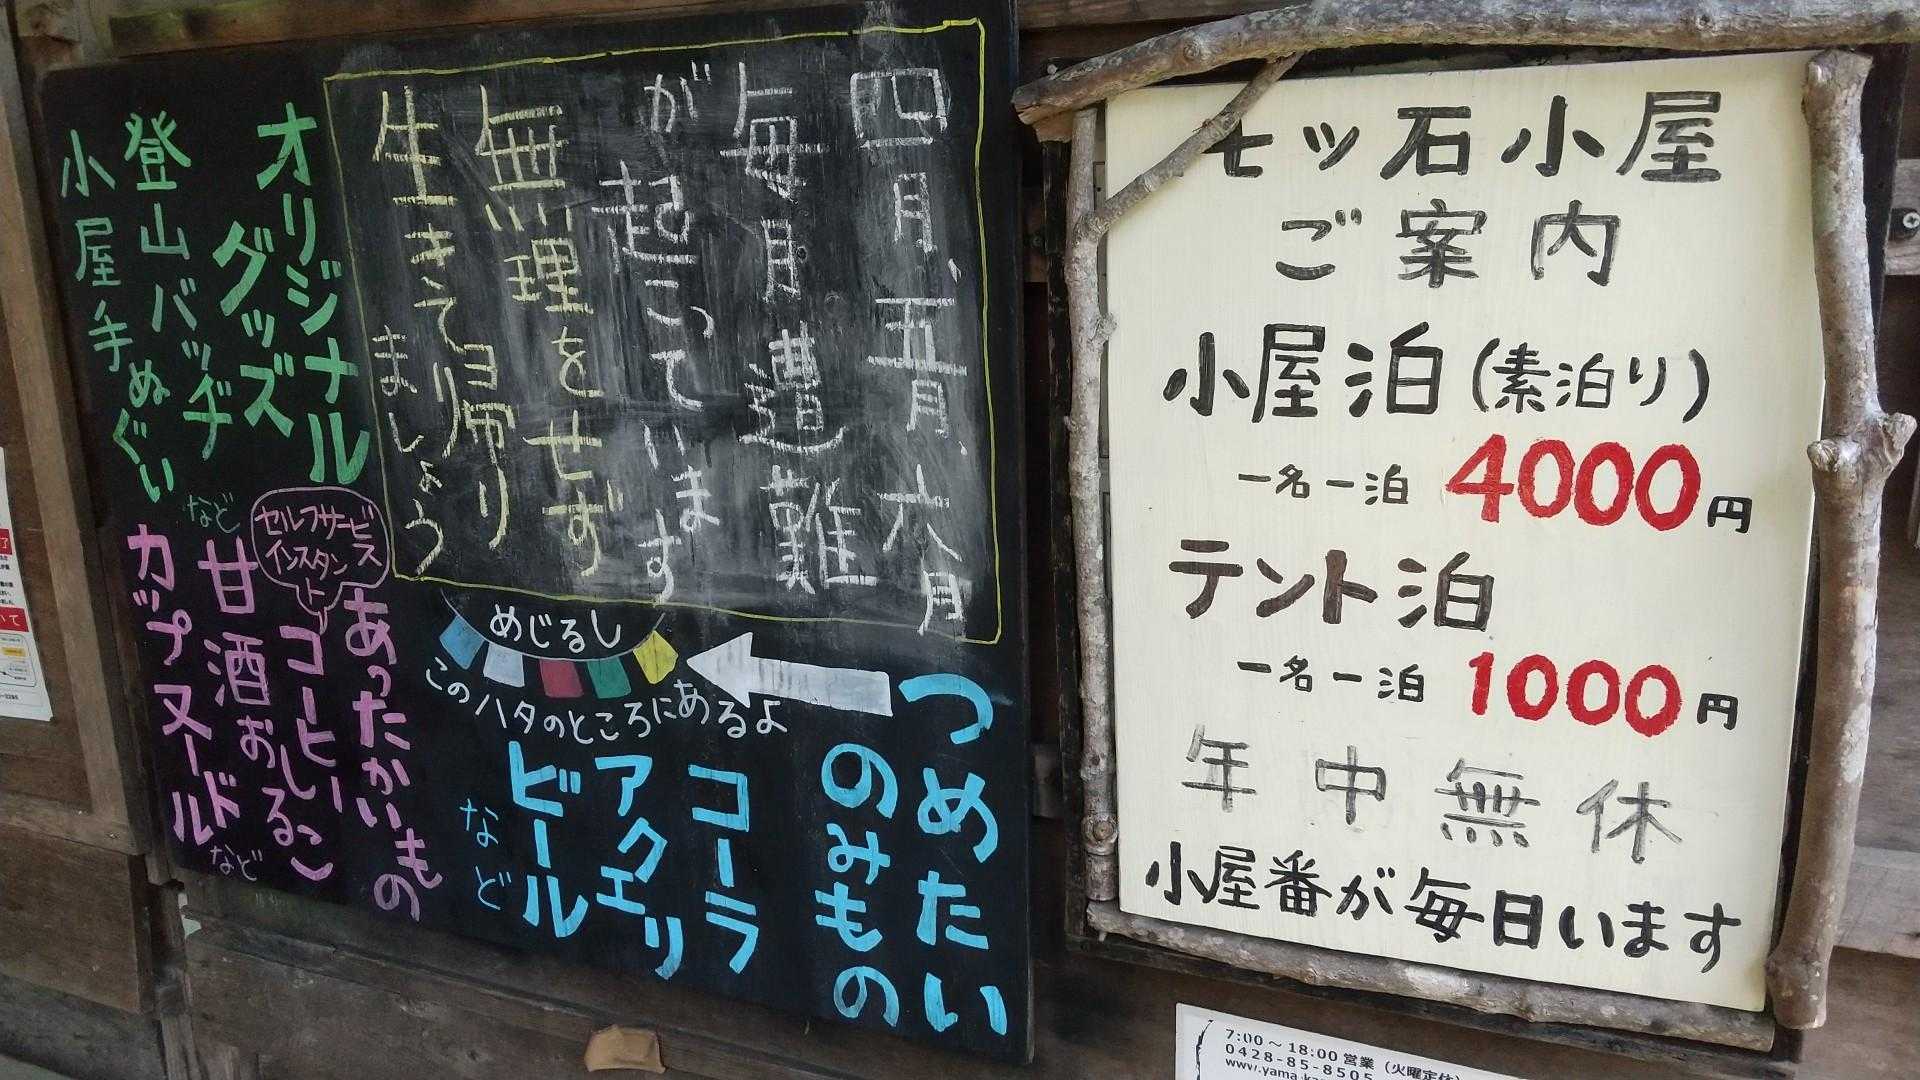 四月、五月、六月
毎月遭難
が起こっています
無理をせず
生きて帰り
ましょう
オリジナル
グッズ
登山バッヂ
小屋手ぬぐい
など
セルフサービス
インスタント
あったかいもの
コーヒー
おしるこ
甘酒
カップヌードル
など
めじるし
このハタのところにあるよ
つめたい
のみもの
コーラ
アクエリ
ビール
など
七ッ石小屋
ご案内
小屋泊(素泊り)
一名一泊 4000円
テント泊
一名一泊 1000円
年中無休
小屋番が毎日います
7:00～18:00営業（火曜定休）
0428-85-8505